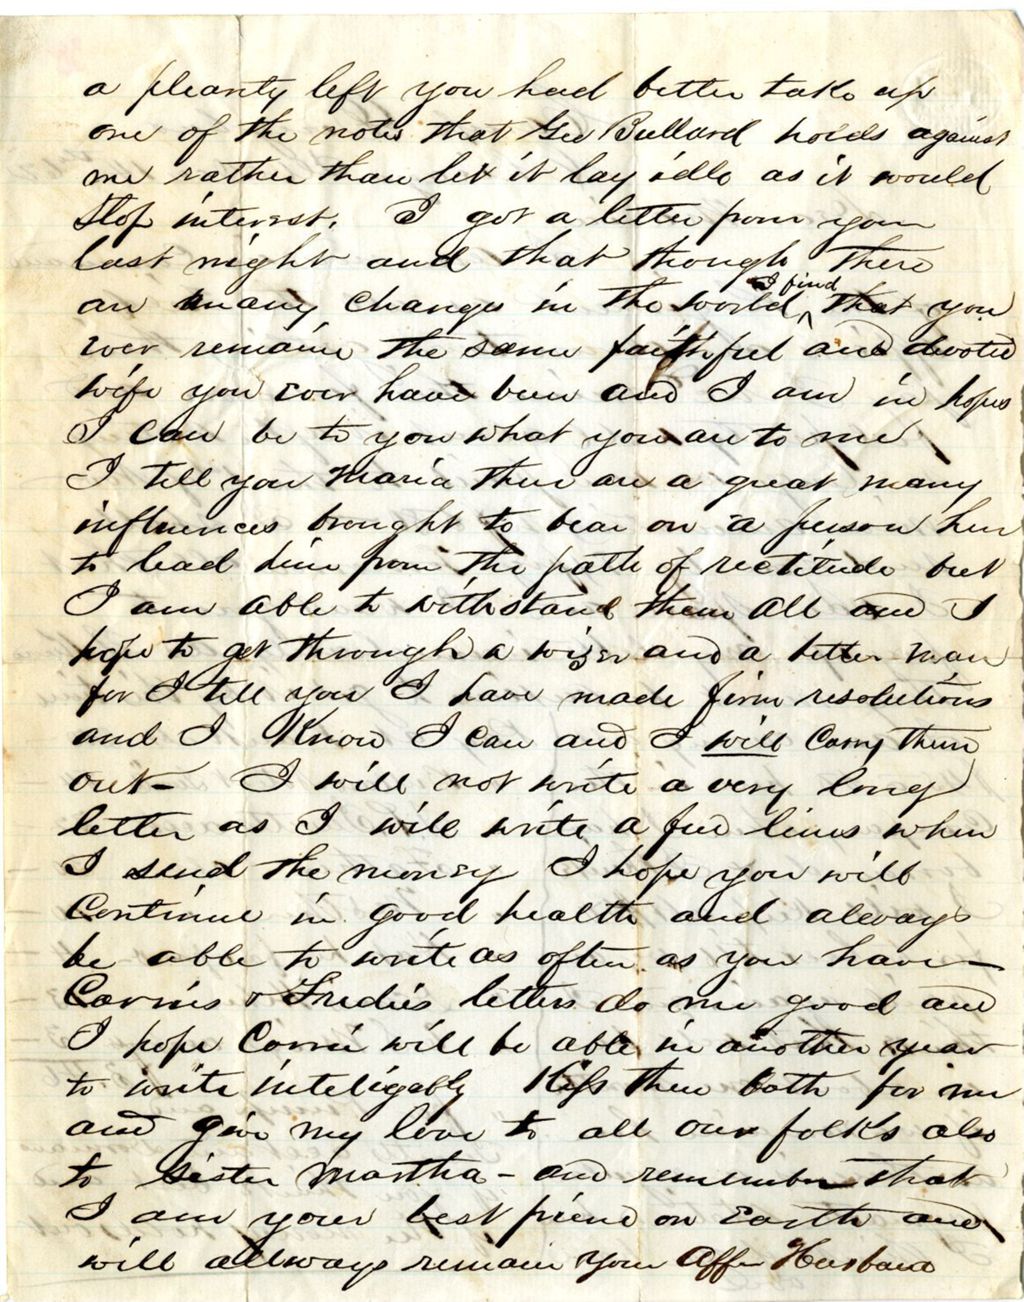 a pleanty left you had better take up
one of the notes that Geo Bullard holds against
me rather than let it lay idle as it would
stop interest. I got a letter from you
last night and that though there
are many changes in the world I find that you
ever remain the same faithful and devoted
wife you ever have been and I am in hopes
I can be to you what you are to me
I tell you Maria there are a great many
influences brought to bear on a person here
to lead him from the path of rectitude but
I am able to withstand them all and I
hope to get through a wiser and a better man
for I tell you I have made firm resolutions
and I Know I can and I will Carry them
out- I will not write a very long
letter as I will write a few lines when
I send the money I hope you will
Continue in good health and always
be able to write as often as you have-
Carries & Fredies letters do me good and
I hope Carrie will be able in another year
to write inteligably Kiss them both for me
and give my love to all our folks also
to Sister Martha - and remember that
I am your best friend on Earth and
will allways remain your Affn Husband